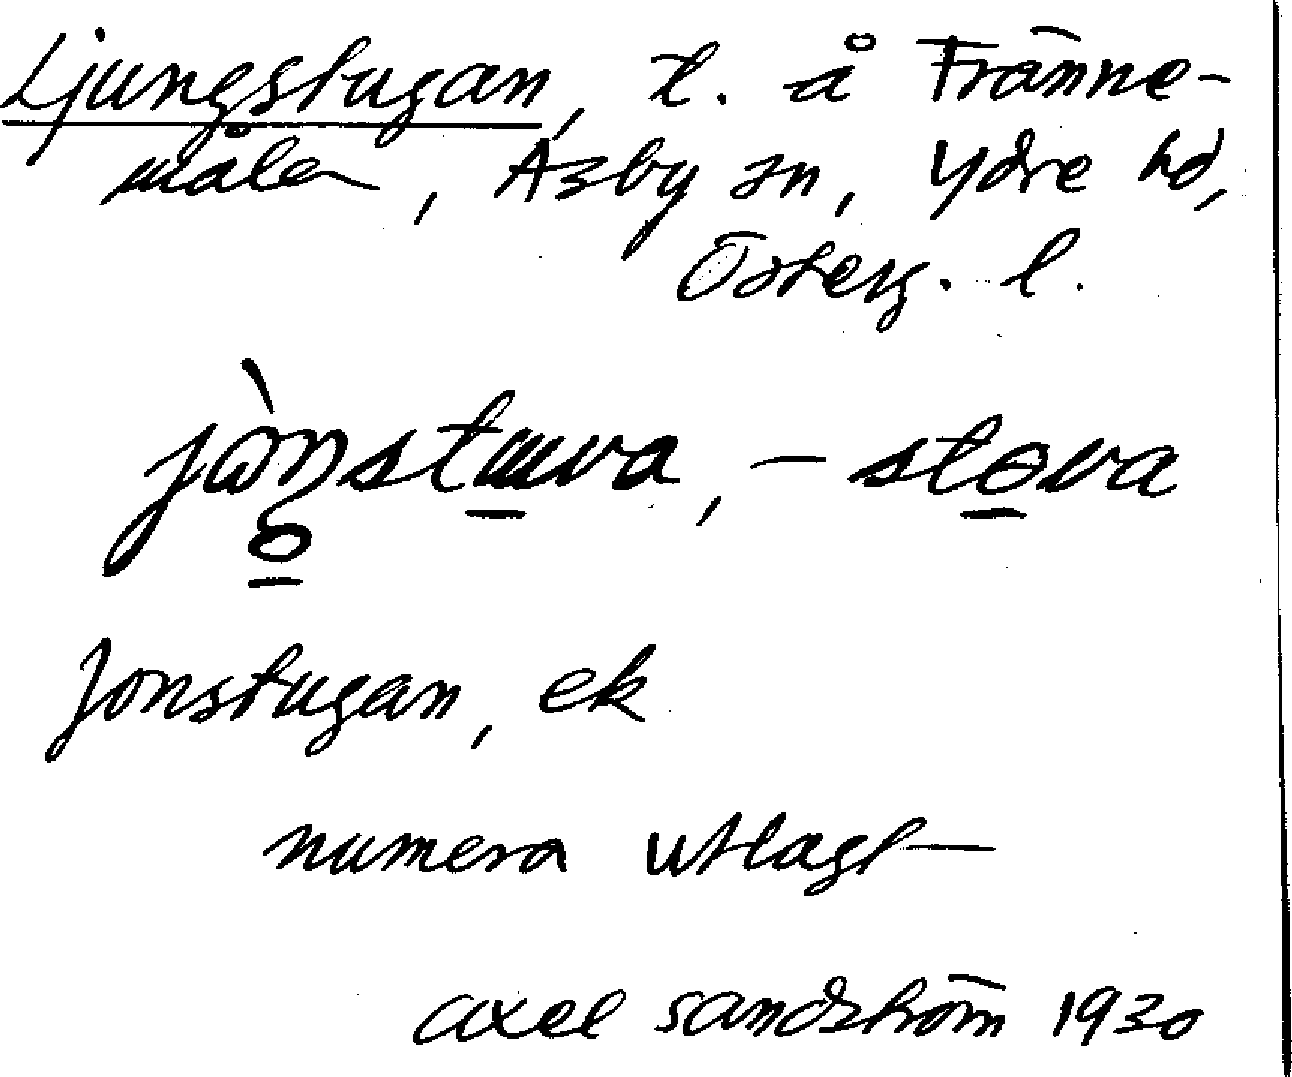 Ljungstugan, t. å Tränne-
målen, Asby sn, Ydre hd,
Österg. l.
jòn̥stuva, – stova
Jonstugan, ek
numera utlagt—
axel sandström 1930